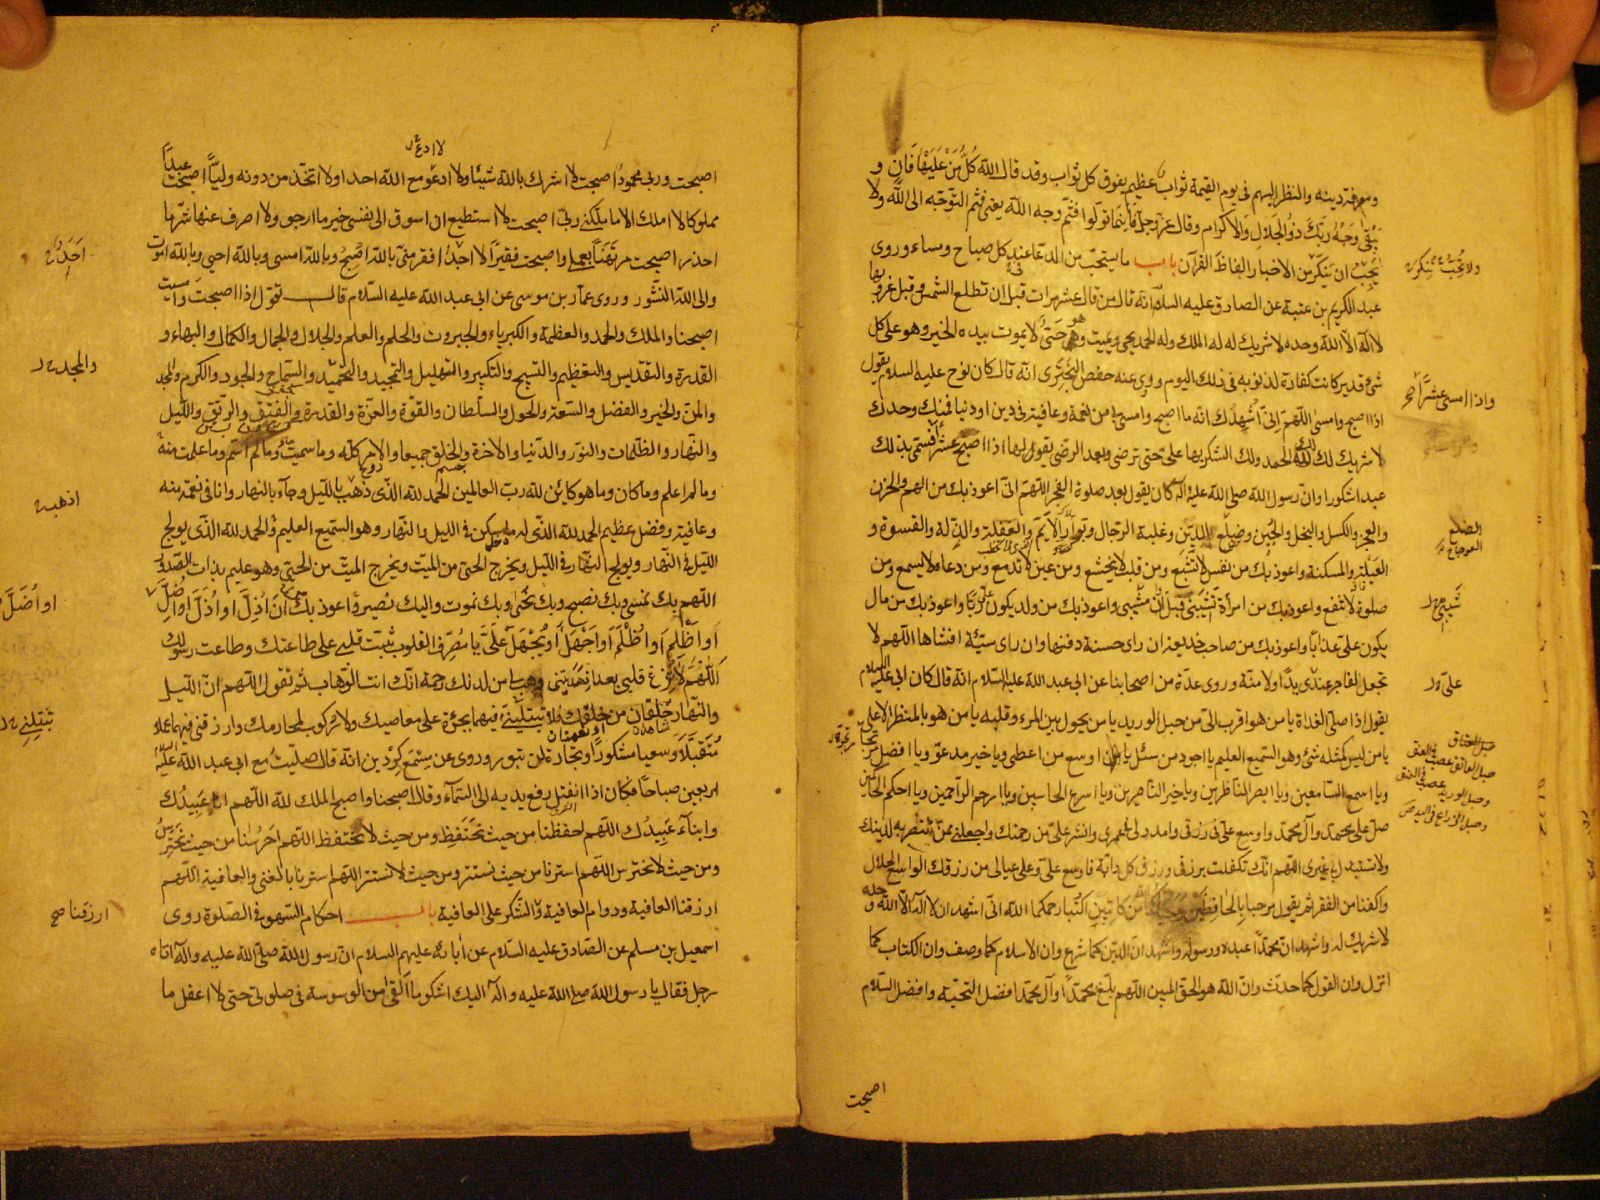 ومعرفة دينه والنظر اليهم في يوم القيمة ثواب عظيم يفوق كل ثواب وقد قال الله كُلُّ مَنْ عَلَيْهَا فَانٍ و
يَبْقَى وَجْهُ رَبِّكَ ذُو الْجَلَالِ وَالْاِكْرَامِ وقال عز وجل فَاَيْنَمَا تُوَلُّوا فَثَمَّ وجه الله يعني فثم التوجه الى الله ولا
يجب ان ينكر من الاخبار الفاظ القرآن باب ما يستحب من الدعا عند كل صباح ومساء وروى
عبد الكريم بن عتبة عن الصادق عليه السلم انه قال من قال عشر مرات قبل ان تطلع الشمس وقبل غروبها
لا اله الا الله وحده لا شريك له له الملك وله الحمد يحيي ويميت وهو حَيٌّ لا يموت بيده الخير وهو على كل
شئ قدير كانت كفارة لذنوبه في ذلك اليوم وروى عنه حفص البَخْتَري انه قال كان نوح عليه السلام يقول
اذا اصبح وامسى اللهم اني اُشْهِدُك انه ما اصبح وامسى بي من نعمة وعافية في دين او دنيا فمنك وحدك
لا شريك لك لك الحمد ولك الشكر بها علي حتى ترضى وبعد الرضى يقول بها اذا اصبح عشرًا فسمي بذلك
عبدا شكورا وان رسول الله صلى الله عليه وآله كان يقول بعد صلوة الفجر اللهم اني اعوذ بك من الهم والحزن
والعجز والكسل والبخل والجُبن وضلع الدين وغلبة الرجال وبوار الايّم والغفلة والذلة والقسوة و
العَيلة والمسكنة واعوذ بك من نفس لا تشبع ومن قلب لا يخشع ومن عين لا تدمع ومن دعاء لا يسمع ومن
صلوة لا تنفع واعوذ بك من امرأة تُشَيّبني قبل اوان مشيبي واعوذ بك من ولد يكون عليّ رَبًّا واعوذ بك من مال
يكون علي عذابا واعوذ بك من صاحب خديعة ان راى حسنة دفنها وان راى سيئة افشاها اللهم لا
تجعل لفاجر عندي يدًا ولا منة وروى عدة من اصحابنا عن ابي عبد الله عليه السلام انه قال كان ابي عليه السلام
يقول اذا صلى الغداة يا من هو اقرب الي من حبل الوريد يا من يحول بين المرء وقلبه يا من هو بالمنظر الاعلى
يا من ليس كمثله شئ وهو السميع العليم يا اجود من سئل يا اوسع من اعطى ويا خير مدعو ويا افضل مرتجى
ويا اسمع السامعين ويا ابصر الناظرين ويا خير الناصرين ويا اسرع الحاسبين ويا ارحم الراحمين ويا احكم الحاكمين
صل على محمد وآل محمد واوسع علي في رزقي وامدد لي في عمري وانشر علي من رحمتك واجعلني ممن تنتصر به لدينك
ولا تستبدل بي غيري اللهم انك تكفلت برزقي ورزق كل دابة فاوسع علي وعلى عيالي من رزقك الواسع الحلال
واكفنا من الفقر ثم يقول مرحبا بالحافظين كاتبين اكتبا رحمكما الله اني اشهد ان لا اله الا الله و
لا شريك له واشهد ان محمدا عبده ورسوله واشهد ان الدين كما شرع وان الاسلام كما وصف وان الكتاب كما
انزل وان القول كما حدث وان الله هو الحق المبين اللهم بلغ محمدا وآل محمد افضل التحية وافضل السلام
اصبحت
واذا امسى عشرًا صح
الضلع
الاعوجاج
تُشَيّبني
حبل الوريد عصب في العنق
وحبل الذراع في اليد ص
لا ادعو
اصبحت وربي محمودُ اصبحت لا اشرك بالله شيئا ولا ادعو مع الله احدا ولا اتخذ من دونه وليّاً اصبحت عبداً
مملوكا لا املك الا ما ملّكني ربّي اصبحت لا استطيع ان اسوق الى نفسي خير ما ارجو ولا اصرف عنها شر ما
احذر اصبحت مرتهنا بعملي واصبحت فقيرا لا اجد افقر مني بالله اُصبح وبالله امسى وبالله احيى وبالله اموت
والى الله النشور وروى عمار بن موسى عن ابي عبد الله عليه السلام قال تقول اذا اصبحت وامسيت
اصبحنا والملك والحمد والعظمة والكبرياء والجبروت والحلم والعلم والجلال والجمال والكمال والبهاء و
القدرة والتقديس والتعظيم والتسبيح والتكبير والتهليل والتمجيد والتحميد والسماح والجود والكرم والمجد
والمن والخير والفضل والسعة والحول والسلطان والقوة والعزة والقدرة والفتق والرتق والليل
والنهار والظلمات والنور والدنيا والاخرة والخلق جميعا والامر كله وما سميت وما لم اسم وما علمت منه
وما لم اعلم وما كان وما هو كاين لله رب العالمين الحمد لله الذي ذهب بالليل وجاء بالنهار وانا في نعمة منه
وعافية وفضل عظيم الحمد لله الذي له ما سكن في الليل والنهار وهو السميع العليم والحمد لله الذي يولج
الليل في النهار ويولج النهار في الليل ويخرج الحي من الميت ويخرج الميت من الحي وهو عليم بذات الصدور
اللهم بك نمسي وبك نصبح وبك نحيى وبك نموت واليك نصير واعوذ بك أن اُذِلّ او اُذَلَّ او اُضِلَّ
اَو اَظْلِمَ اَو اُظْلَمَ اَو اَجْهَلَ اَو يُجْهَلَ عَلَيَّ يا مُصرّف القلوب ثبت قلبي على طاعتك وطاعت رسولك
اَللّهُمَّ لا تُزِغْ قلبي بعد اذ هديتني وهب لي من لدنك رحمة انك انت الوهاب ثم تقول اللهم ان الليل
والنهار خلقان من خلقك فلا تبتليني فيهما بجرءة على معاصيك ولا ركوب لمحارمك وارزقني فيهما عملا
مُتقبّلا وسعيا مشكورا وتجارة لن تبور وروى عن مِسمَع كِرْدين انه قال صليت مع ابي عبد الله عليه السلام
اربعين صباحا فكان اذا انفتل رفع يديه الى السماء وقال اصبحنا واصبح الملك لله اللهم انا عَبيدُك
وابناء عَبيدِك اللهم احفظنا من حيث نَحتَفِظ ومن حيث لا نحتفظ اللهم احرُسنا من حيث نحترس
ومن حيث لا نحترس اللهم استرنا من حيث نستتر ومن حيث لا نستتر اللهم استرنا بالغنى والعافية اللهم
ارزقنا العافية ودوام العافية والشكر على العافية باب احكام السهو في الصلوة روى
اسمعيل بن مسلم عن الصادق عليه السلام عن آبائه عليهم السلام ان رسول الله صلى الله عليه وآله اتاه
رجل فقال يا رسول الله صلى الله عليه وآله اليك اشكو ما القى من الوسوسة في صلوتي حتى لا اعقل ما
والمجد
او اُضَلَّ
تبتلني
ارزقنا صح